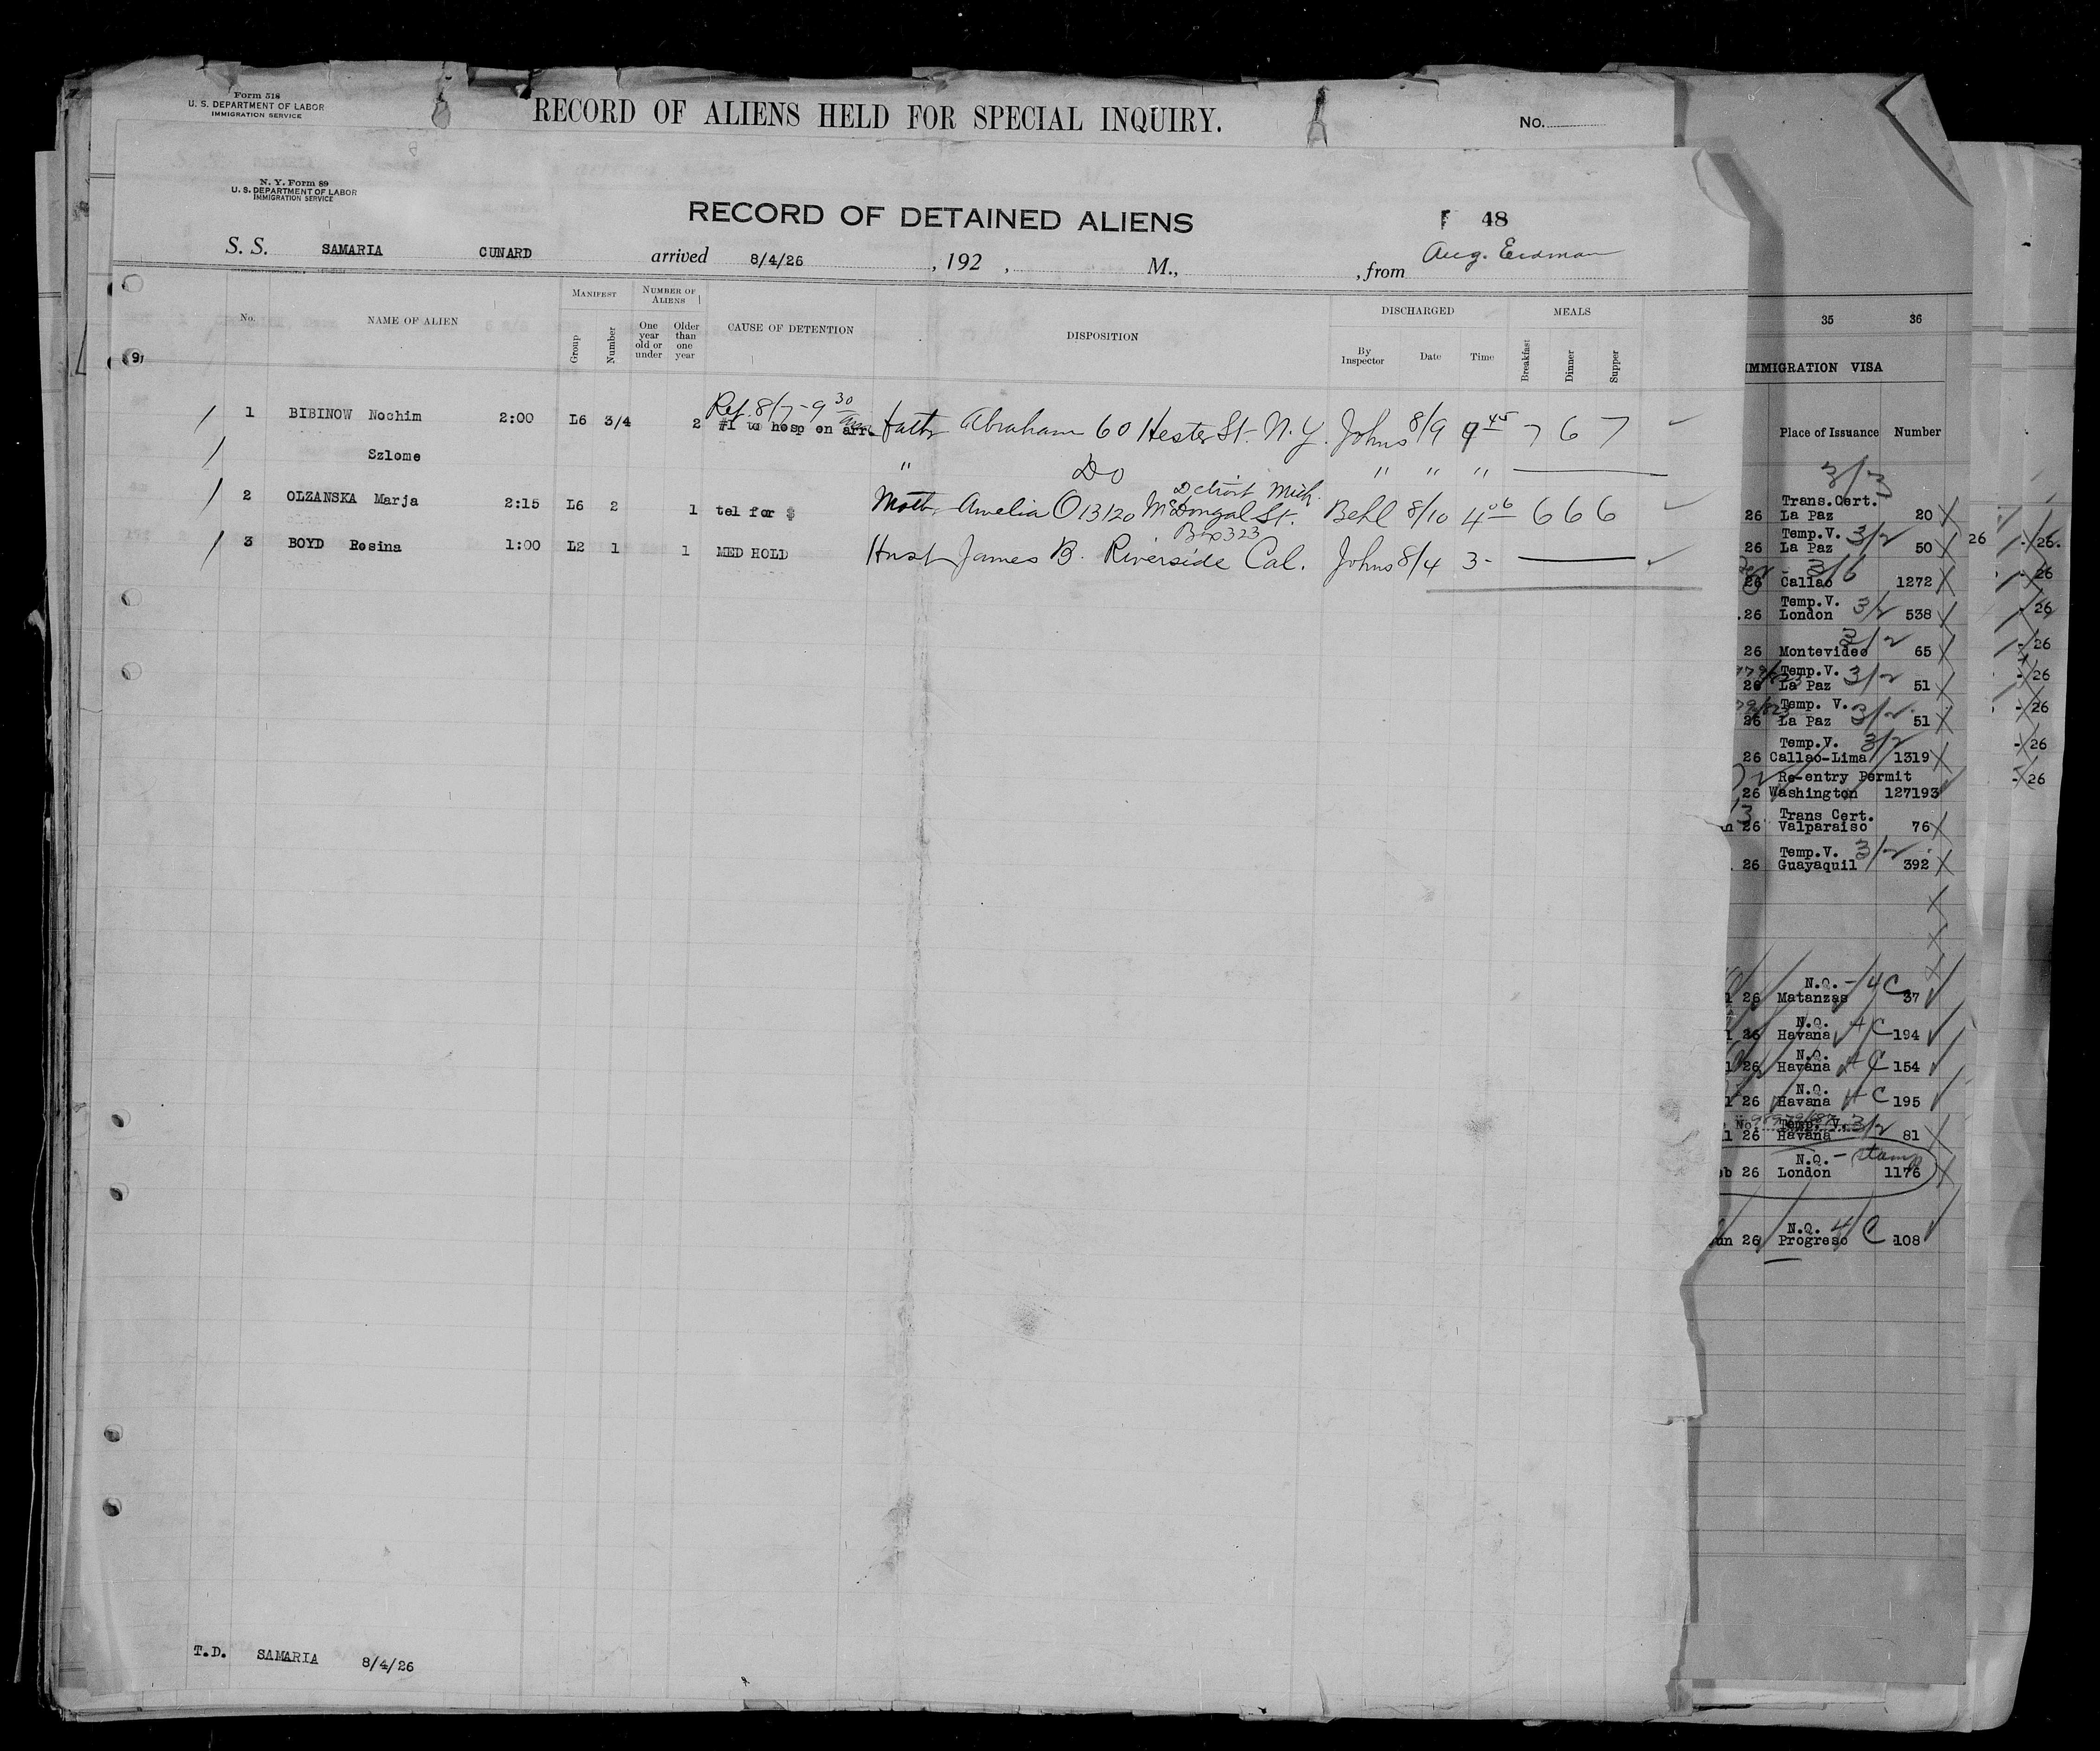 Form 518
U. S. DEPARTMENT OF LABOR
IMMIGRATION SERVICE
RECORD OF ALIENS HELD FOR SPECIAL INQUIRY.
No.
N. Y. Form 89
U. S. DEPARTMENT OF LABOR
IMMIGRATION SERVICE
RECORD OF DETAINED ALIENS
48
S. S. SAMARIA CUNARD arrived 8/4/26, 192 , M., , from Aug. Erdman
No. NAME OF ALIEN MANIFEST Group Number NUMBER OF ALIENS One year old or under Older than one year CAUSE OF DETENTION DISPOSITION DISCHARGED By Inspector Date Time MEALS Breakfast Dinner Supper
Ref. 8/7-9 30 am
1 BIBINOW Nochim 2:00 L6 3/4 2 #1 to hosp on arr. fath Abraham 60 Hester St. N.Y. Johns 8/9 9 45 7 6 7
Szlome " Do " " "
Detroit Mich.
2 OLZANSKA Marja 2:15 L6 2 1 tel for $ Moth. Amelia O 13120 McDongal St. Behl 8/10 4 06 6 6 6
Box 323
3 BOYD Rosina 1:00 L2 1 1 MED HOLD Husb James B. Riverside Cal. Johns 8/4 3-
T.D. SAMARIA 8/4/26
35 36
IMMIGRATION VISA
Place of Issuance Number
3/3
Trans.Cert.
26 La Paz 20
Temp.V. 3/2
26 La Paz 50 26 26.
3/6
26 Callao 1272 26
Temp.V. 3/2
.26 London 538 26
3/2
26 Montevideo 65 26
Temp.V. 3/2
26 La Paz 51 26
Temp. V. 3/2
26 La Paz 51 26
Temp.V. 3/2
26 Callao-Lima 1319 26
Re-entry Permit
26 Washington 127193 26
Trans Cert.
26 Valparaiso 76
Temp.V. 3/2
26 Guayaquil 392
N.Q. - 4 C
26 Matanzas 37
N.Q. 4 C
26 Havana 194
N.Q. 4 C
26 Havana 154
N.Q. 4 C
26 Havana 195
No. Temp. V. 3/2
26 Havana 81
N.Q. - stamp
26 London 1176
N.Q. 4 C
un 26 Progreso 108